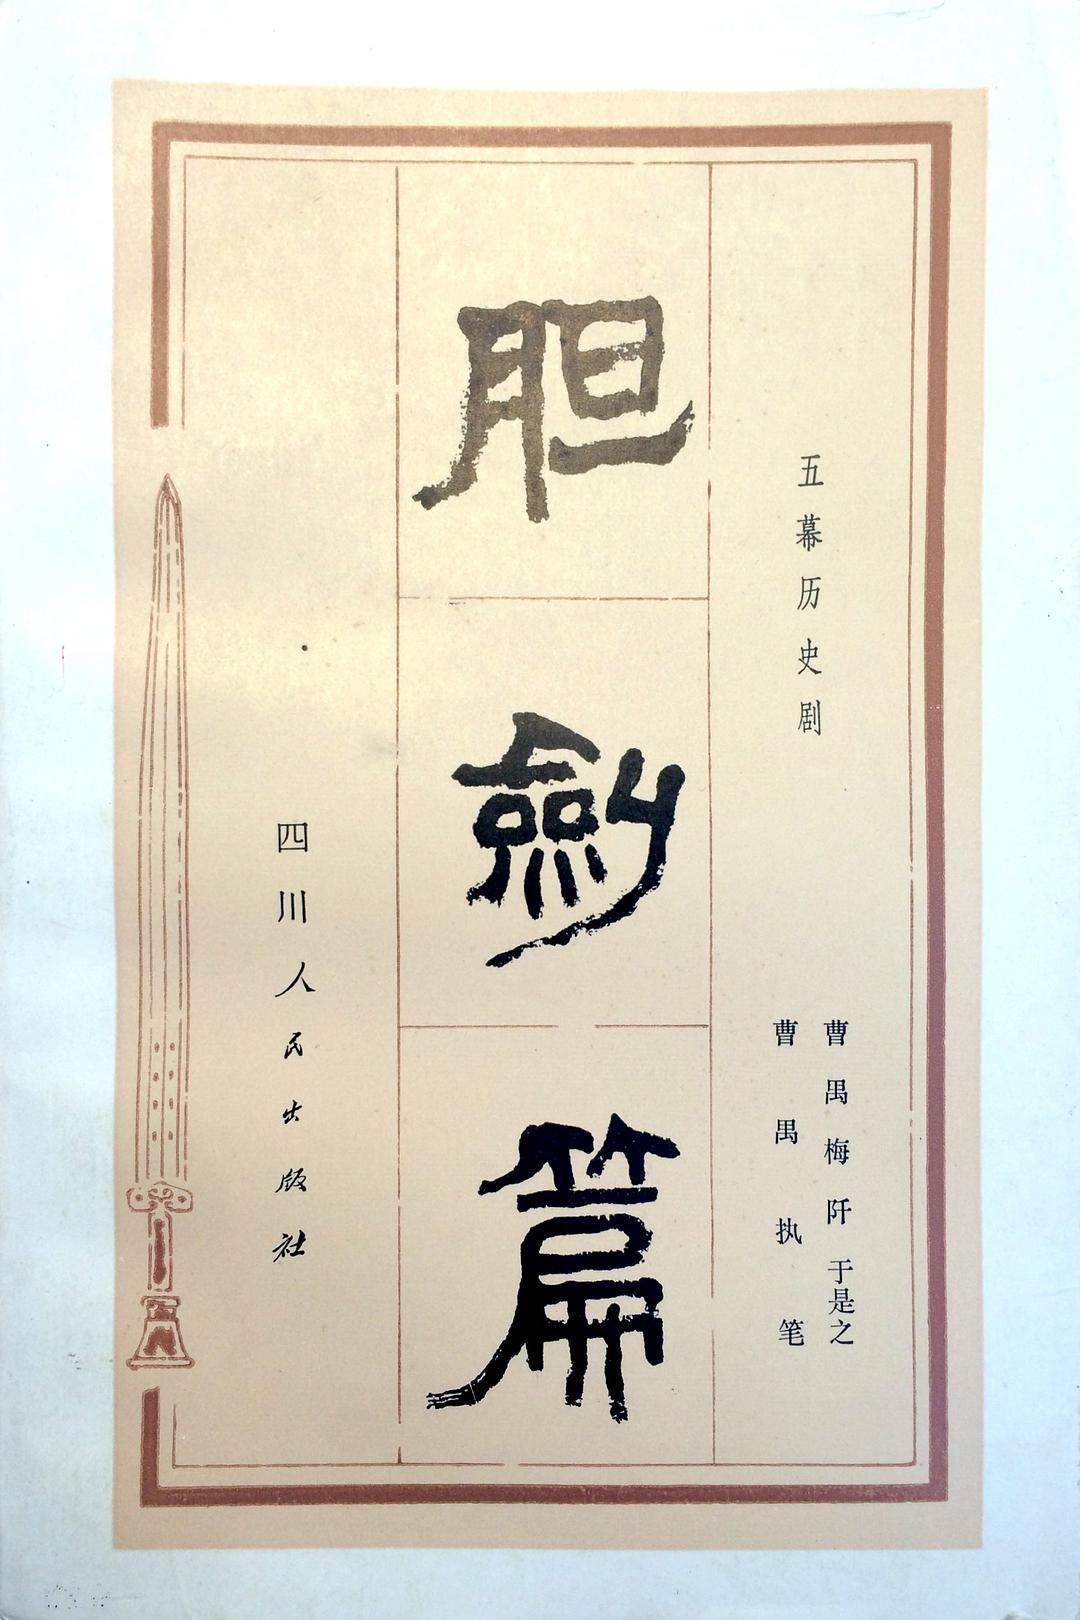 五幕历史剧
曹禺 梅阡 于是之
曹禺执笔
胆剑篇
四川人民出版社